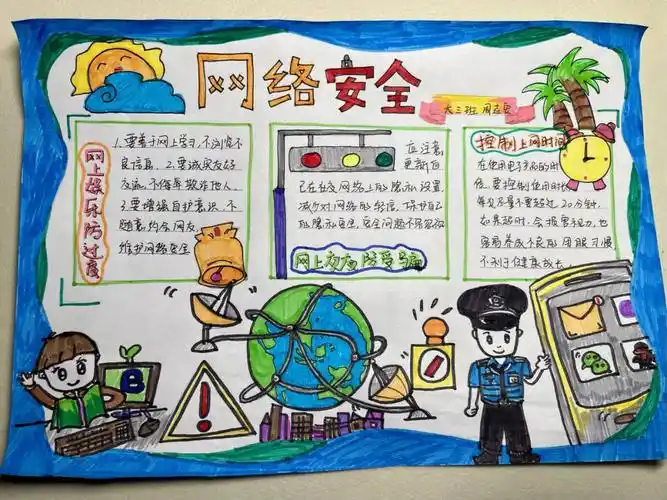 网络安全
大三班 周
网上娱乐防过度
1.要善于网上学习,不浏览不
良信息。2.要诚实友好
交流,不侮辱欺诈他人。
3.要增强自护意识,不
随意约会网友,
维护网络安全
应注意
更新自
己在社交网络上的隐私设置
减少对网络的
的隐私安全,安全问题不容忽视
网上交友
控制上网时间
在使用电子产品的时
候,要控制使用时长
每次尽量不要超过20分钟,
如果超时,会损害视力,也
容易养成不良的用眼习惯
不利于健康成长。
e